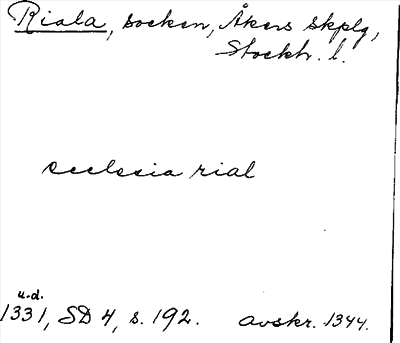 Riala, socken, Åkers skplg,
Stockh. l.
ecclesia rial
u.d.
1331, SD 4, s. 192. avskr. 1344.